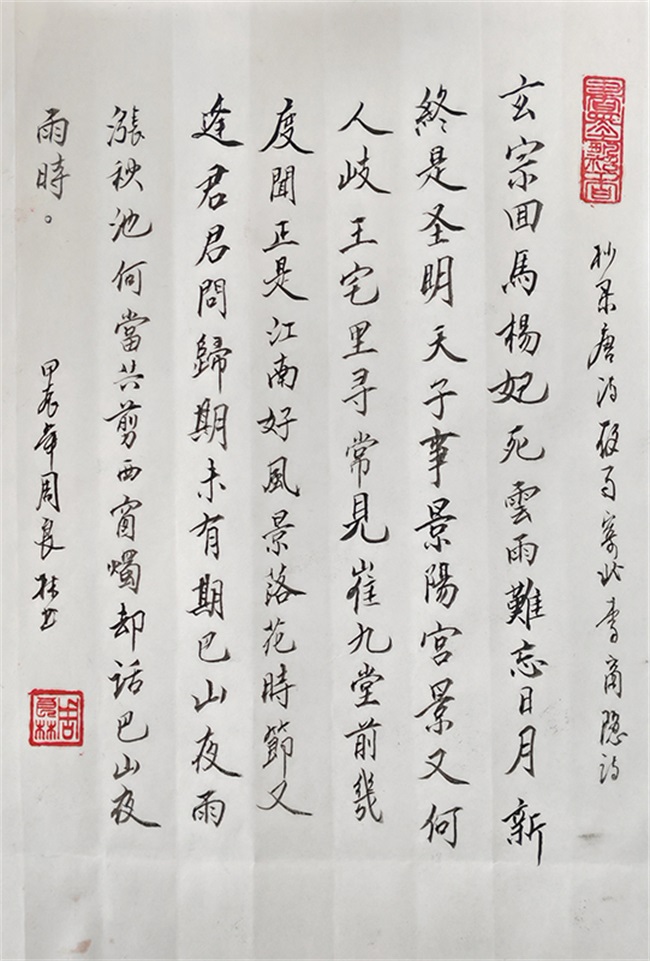 抄录唐诗夜雨寄北李商隐诗
玄宗囬馬楊妃死雲雨難忘日月新
終是圣明天子事景陽宫景又何
人歧王宅里寻常見崔九堂前幾
度聞正是江南好風景落花時節又
逢君君問歸期未有期巴山夜雨
漲秧池何當共剪西窗燭却話巴山夜
雨時。
甲辰年周良林书
周良林